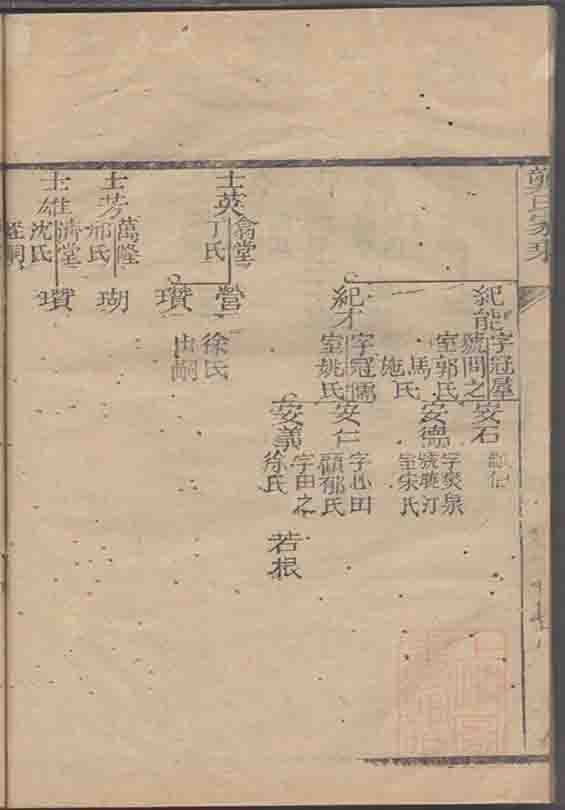 郭氏家乘
紀能
字冠羣
號問之
室郭氏
馬氏
施氏
安石
安德
字奕泉
室宋氏
紀才
字冠儒
室姚氏
安仁
字心田
顧郁氏
安義
字由之
徐氏
若根
士英
翕堂
丁氏
營
徐氏
瓚
出嗣
士芳
萬隆
祁氏
瑚
士雄
濟堂
沈氏
瓚
姪嗣